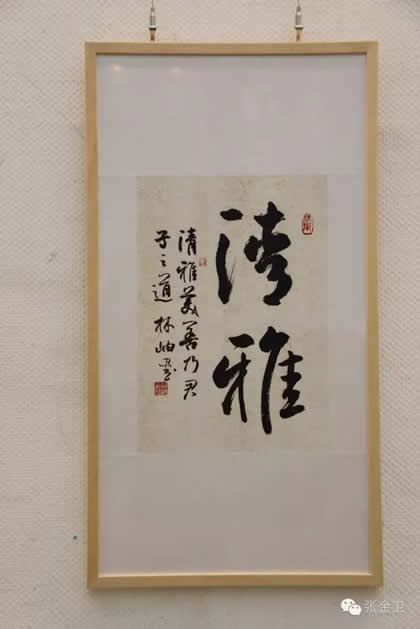 清雅
清雅美善乃君
子之道 林岫書
张金卫